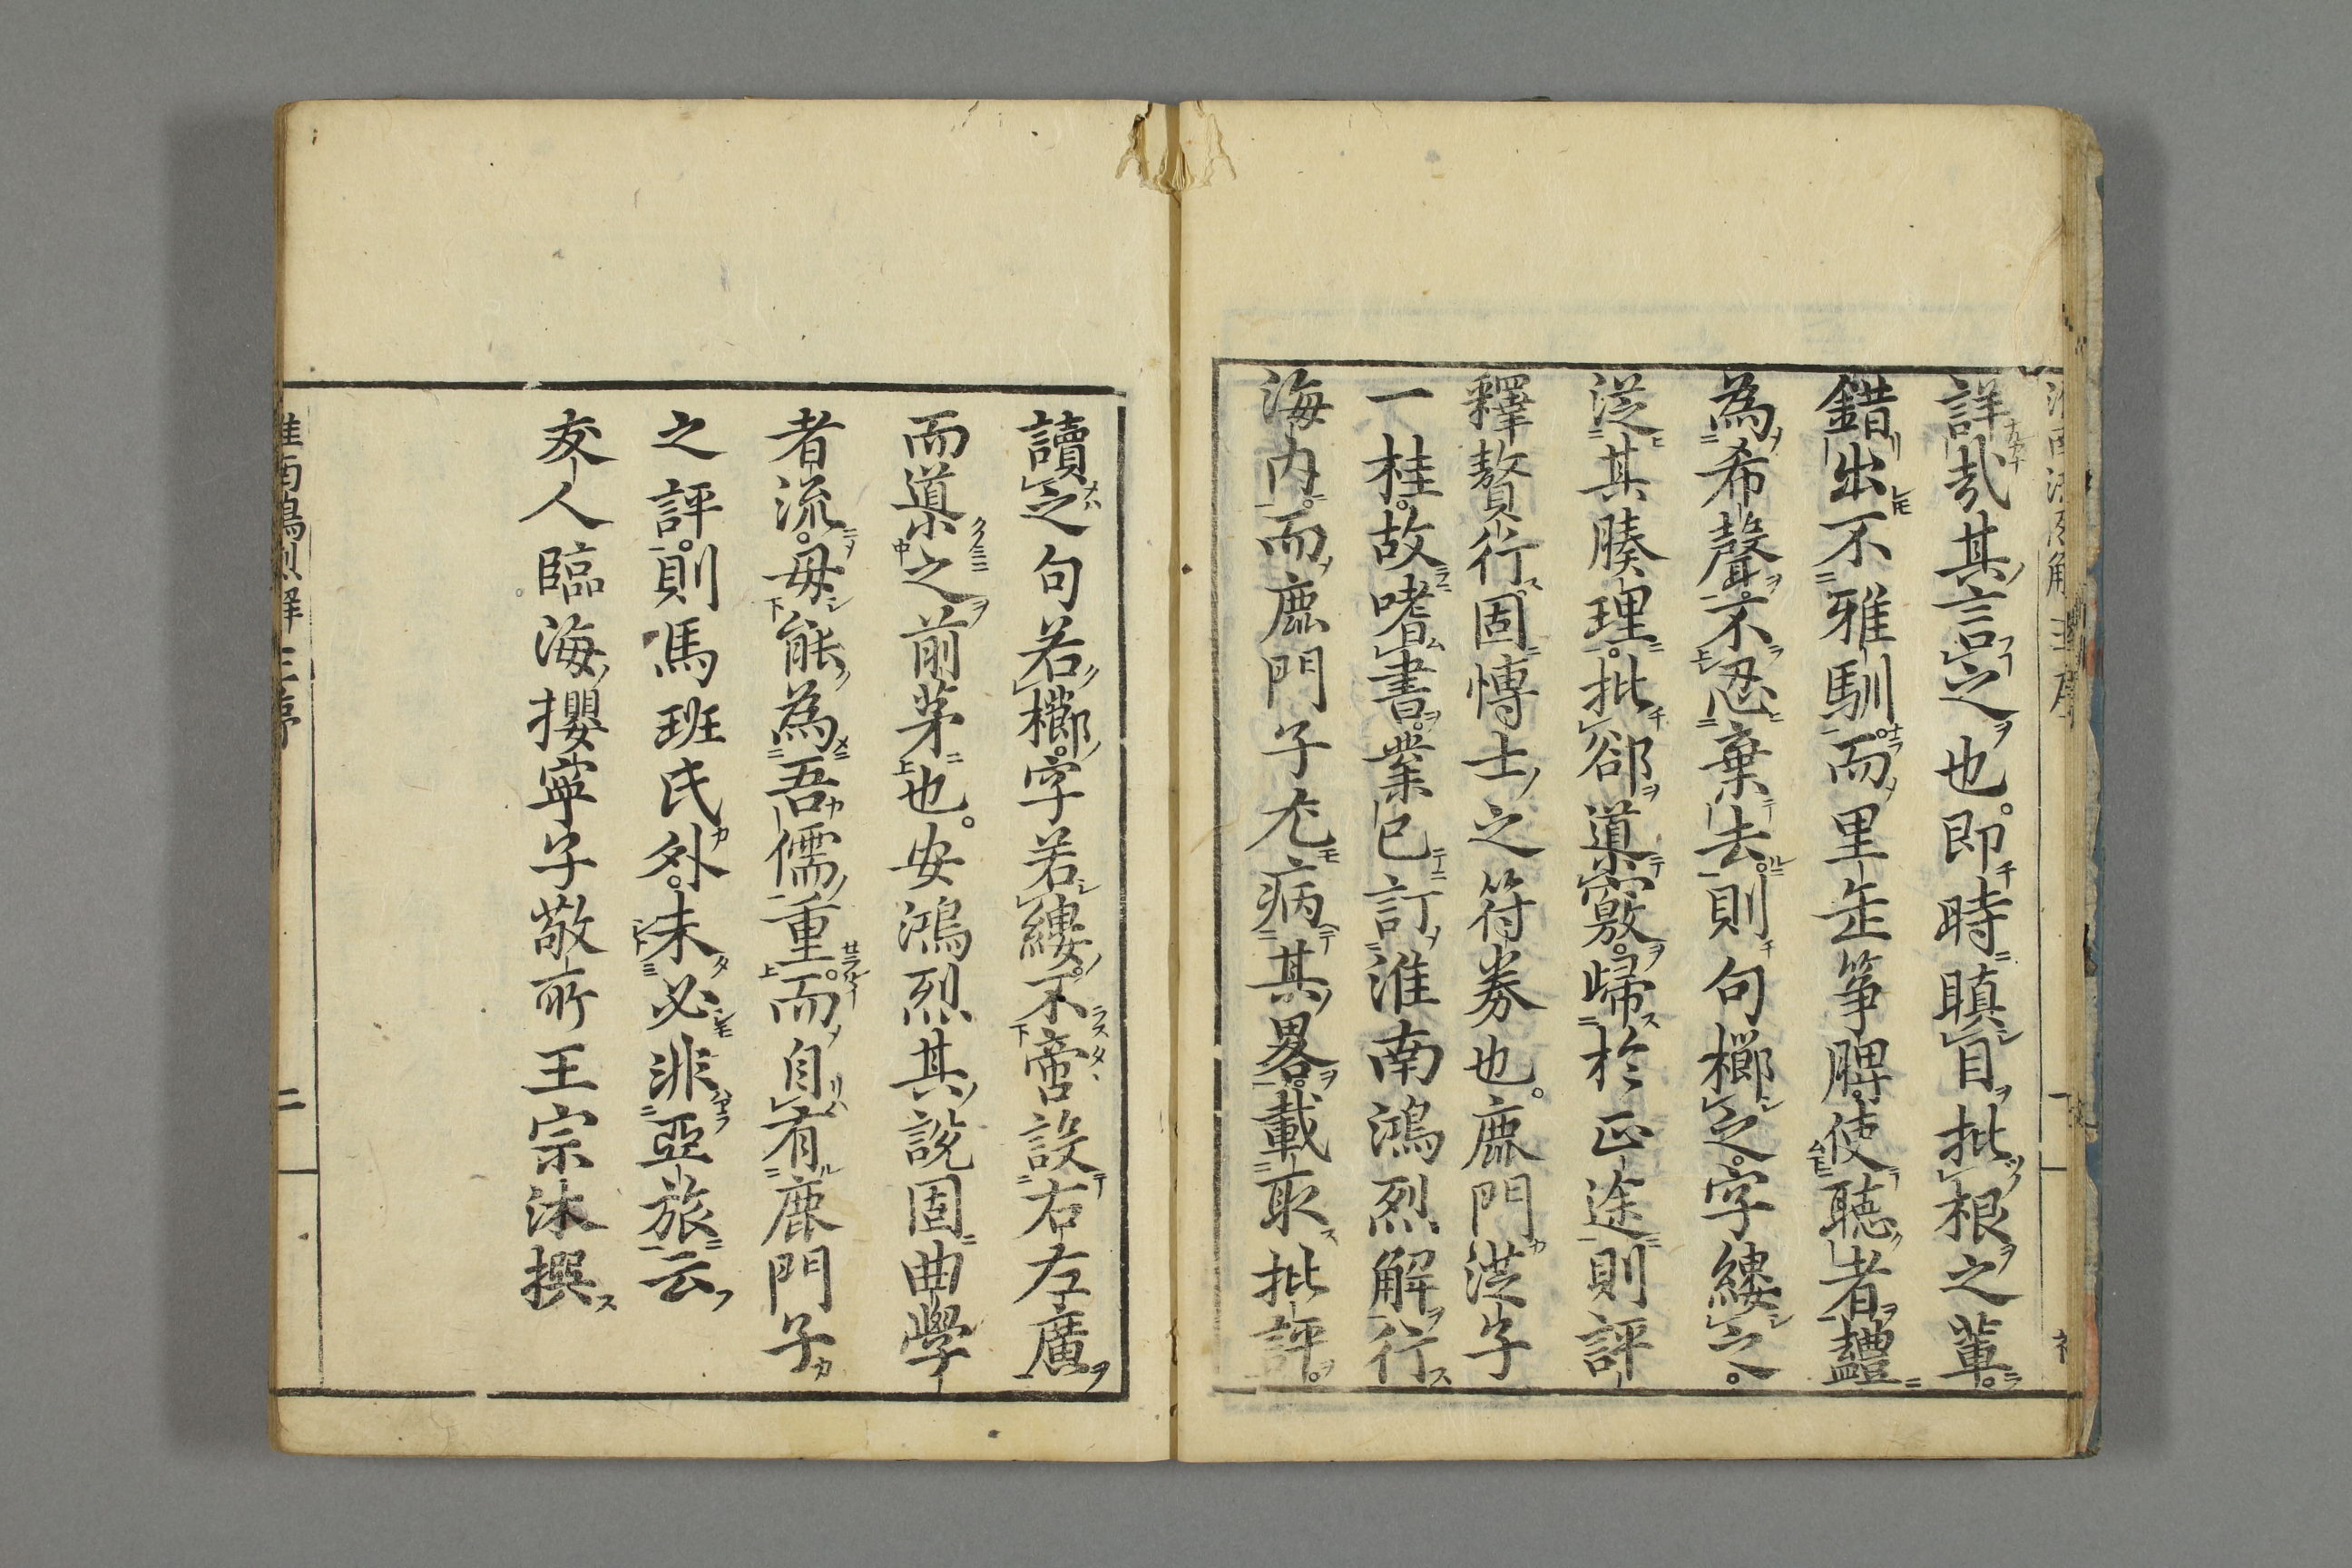 詳哉其言之也。即時瞋目批根之輩。
錯出不雅馴而里缶箏脾。使聽者
為希聲。不忍棄去。則句櫛之。字縷之。
從其腠理。批郤導窾。歸於正途則評
釋贅行。固慱士之符券也。鹿門洪子
一桂。故嗜書。業已訂淮南鴻烈解行
海内。而鹿門子尤病其畧。載取批評。
讀之句若櫛。字若縷。不啻設右左廣
而導之前茅也。安鴻烈其說固曲學
者流。毋能為吾儒重。而自有鹿門子
之評。則馬班氏外。未必非亞旅云
友人臨海攖寧子敬所王宗沐撰
淮南鴻烈解 王序
二